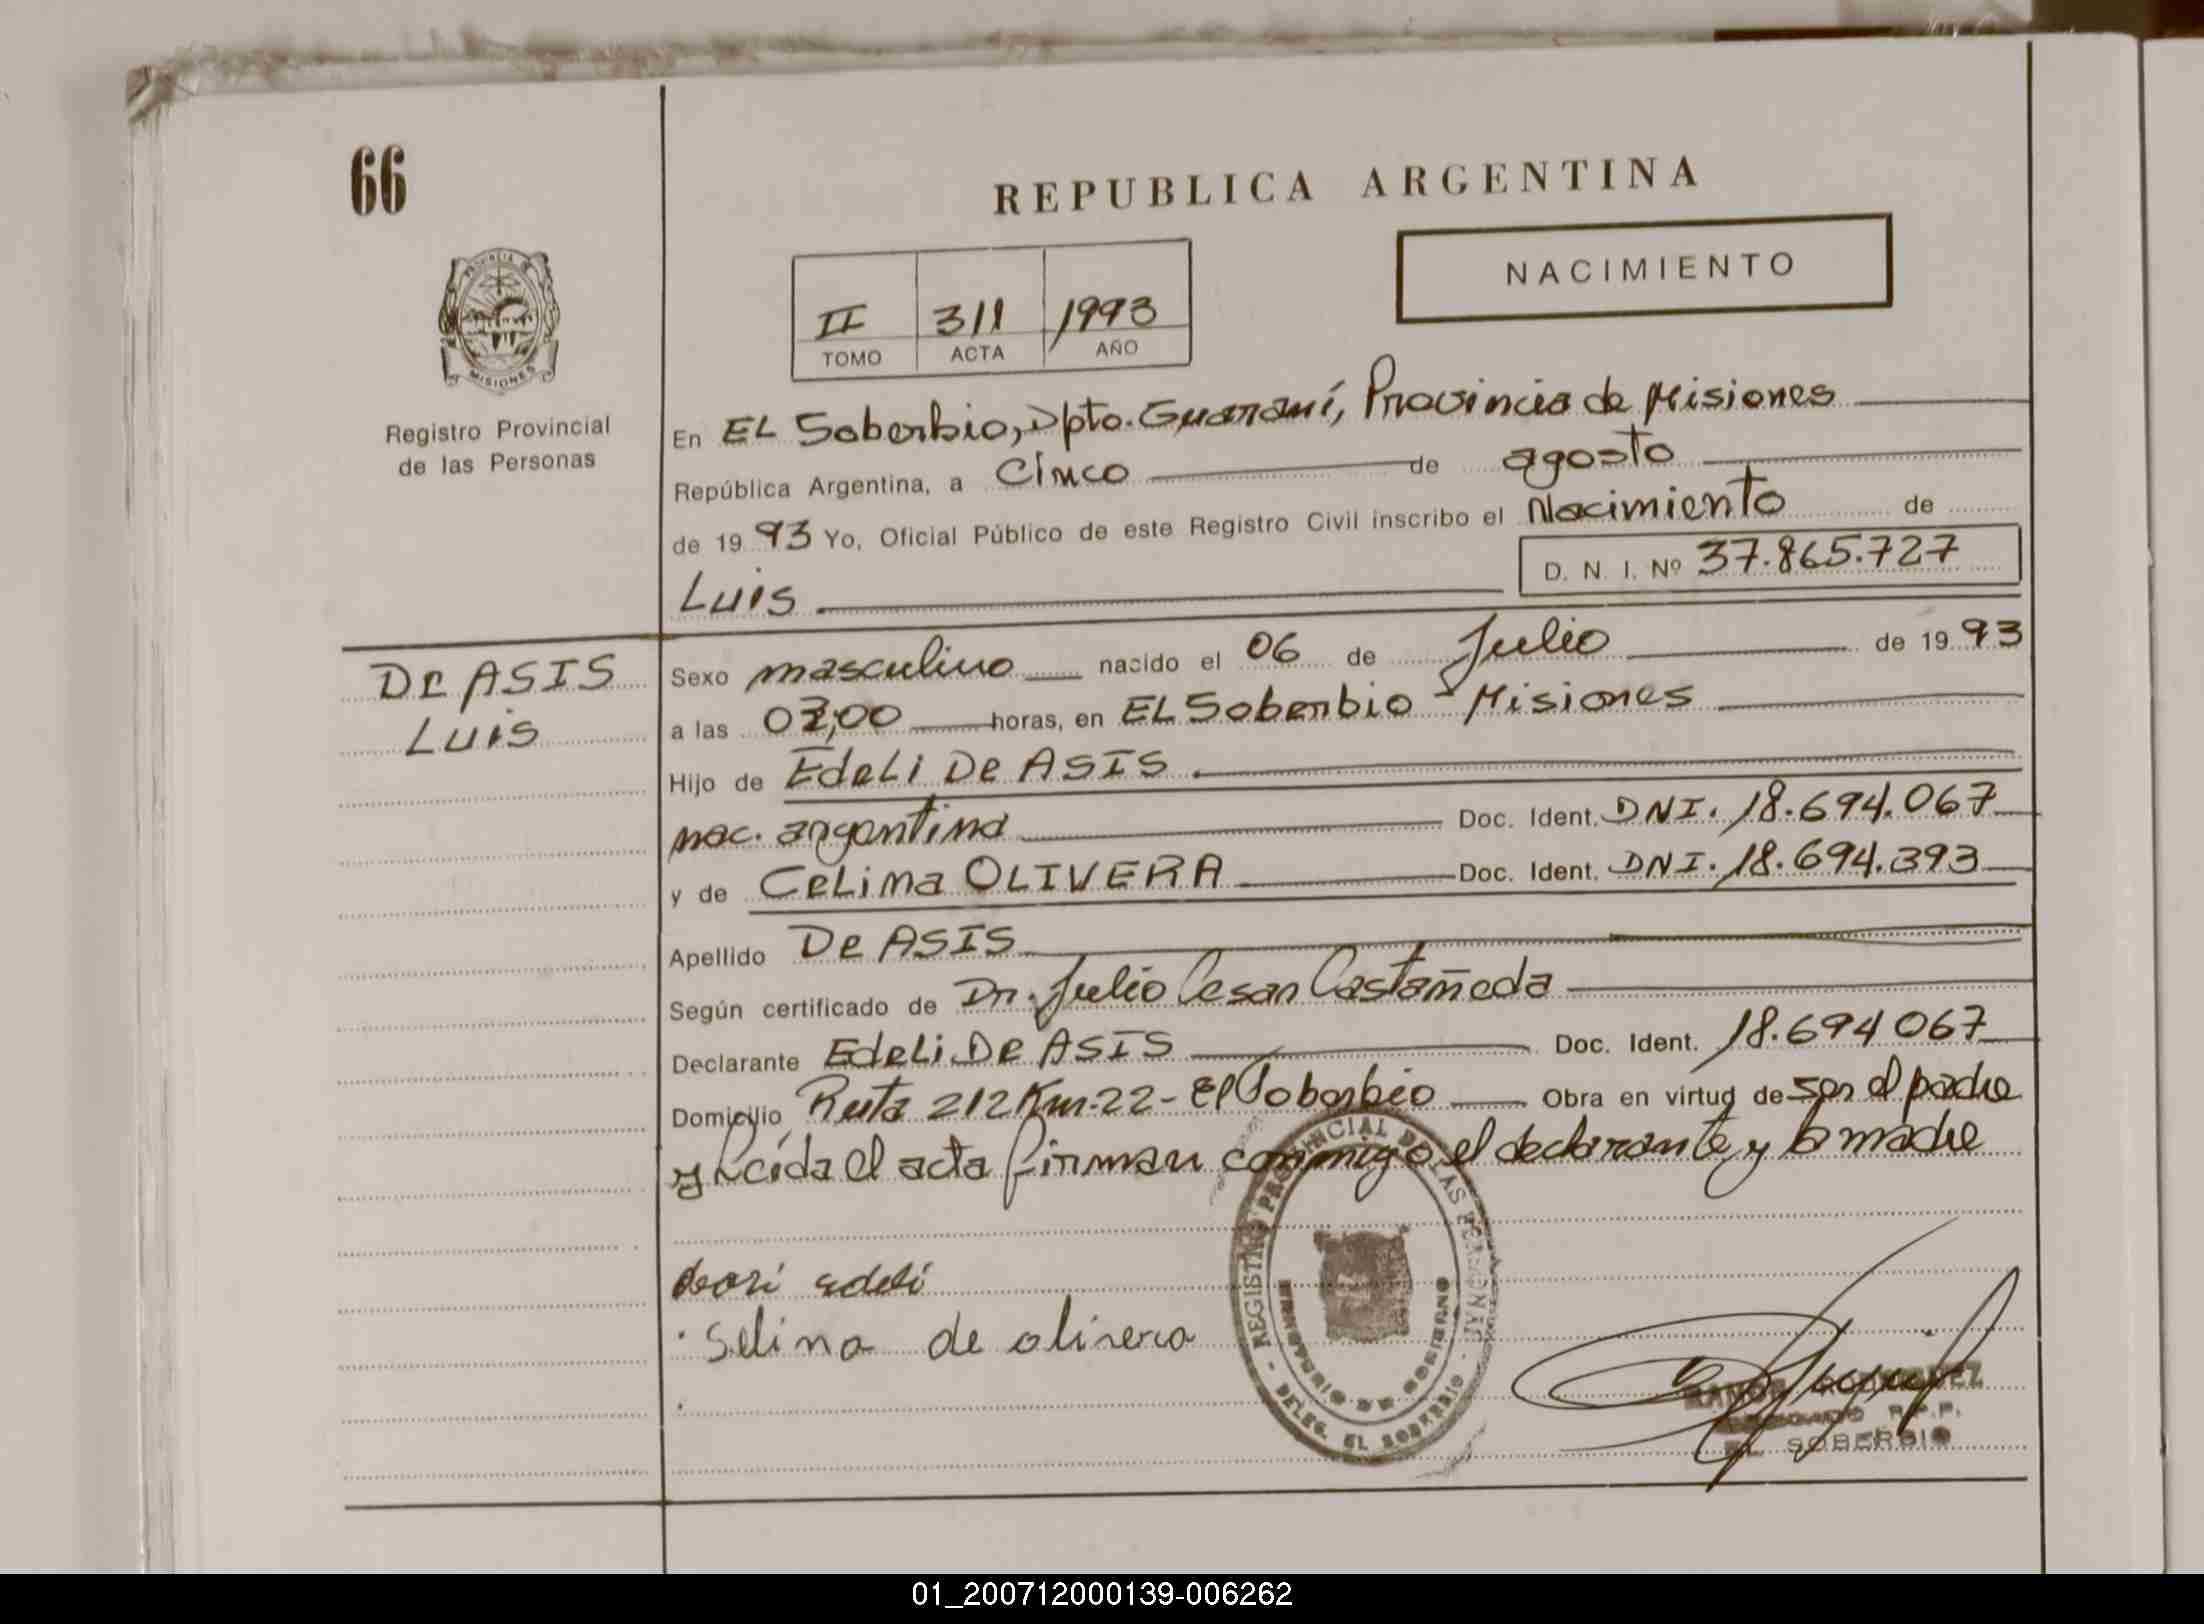 66
REPUBLICA ARGENTINA
NACIMIENTO
II 311 1993
TOMO ACTA AÑO
PROVINCIA DE MISIONES
Registro Provincial
de las Personas
En EL Soberbio, Dpto. Guaraní, Provincia de Misiones
República Argentina, a Cinco de agosto
de 19 93 Yo, Oficial Público de este Registro Civil inscribo el Nacimiento de
D. N. I. Nº 37.865.727
Luis
De ASIS
Luis
Sexo masculino nacido el 06 de Julio de 19 93
a las horas, en EL Soberbio - Misiones
Hijo de Edeli De ASIS
nac. argentina Doc. Ident. DNI. 18.694.067
y de Celima OLIVERA Doc. Ident. DNI. 18.694.393
Apellido De ASIS
Según certificado de Dr. Julio Cesar Castañeda
Declarante Edeli De ASIS Doc. Ident. 18.694 067
Domicilio Ruta 212 Km. 22 - El Soberbio Obra en virtud de ser el padre
y leída el acta firman conmigo el declarante y la madre
edeli
Selina de olivera
REGISTRO PROVINCIAL DE LAS PERSONAS
MINISTERIO DE GOBIERNO
DELEG. EL SOBERBIO
RAMON RODRIGUEZ
DELEGADO R.P.P.
EL SOBERBIO
01_200712000139-006262